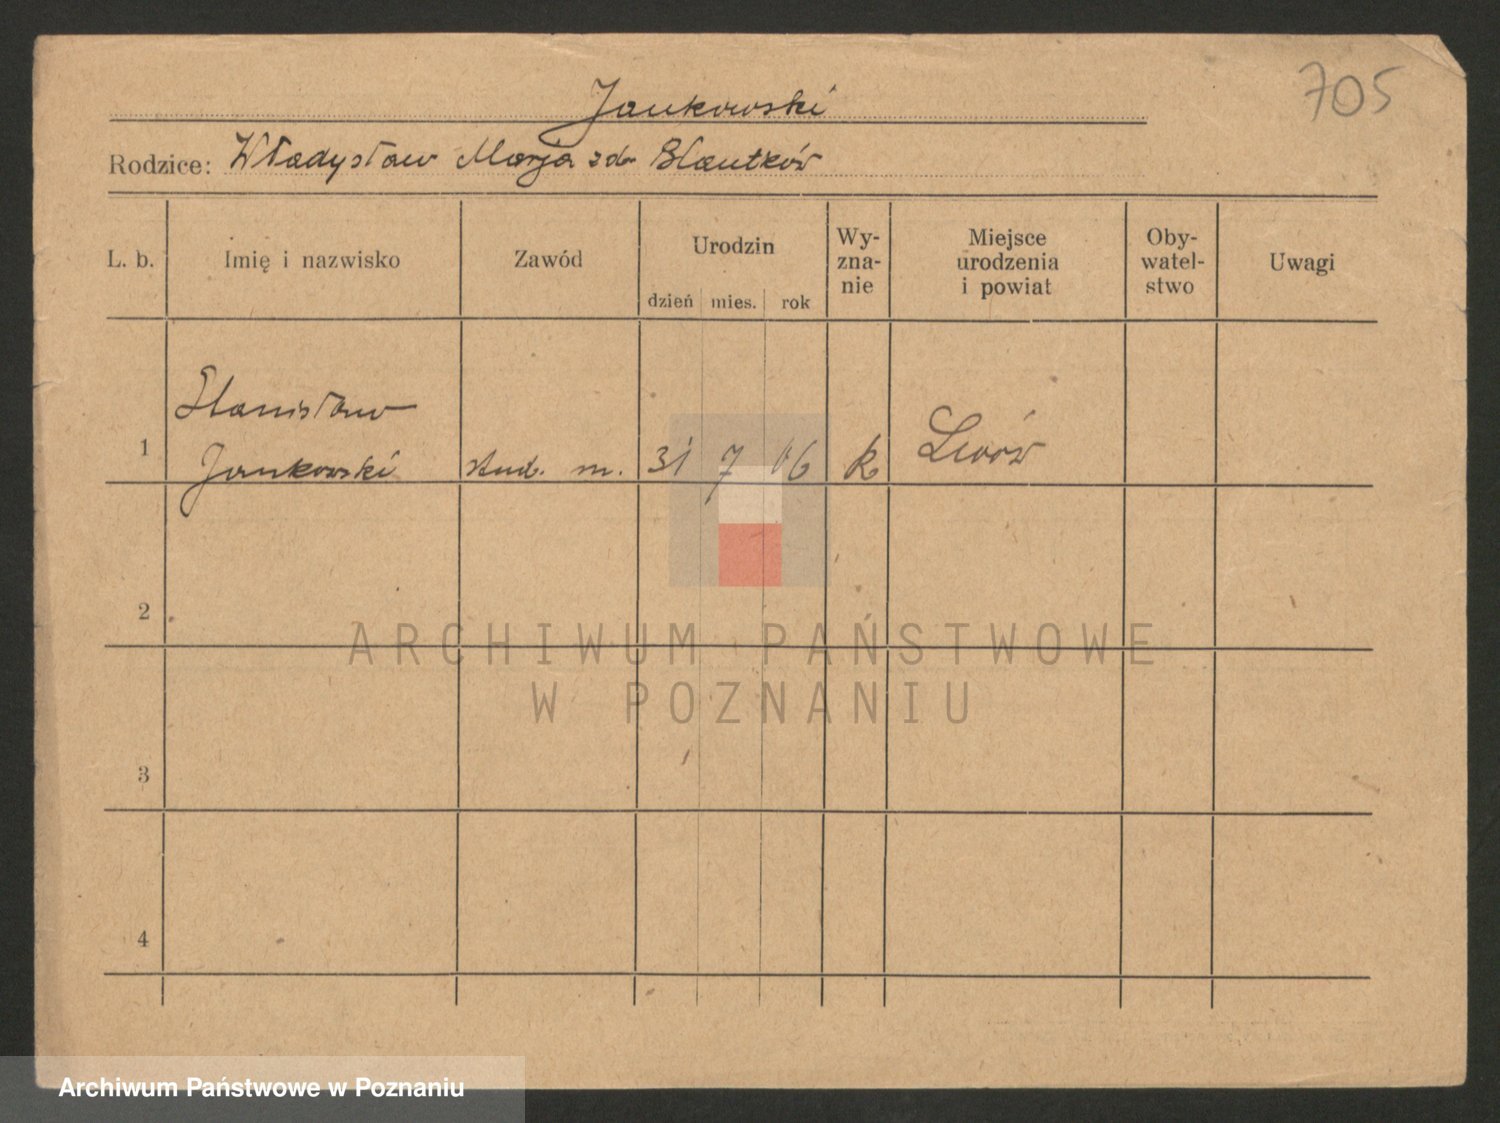 705
Jankowski
Rodzice: Władysław Marja z d.
L. b.
Imię i nazwisko
Zawód
Urodzin
dzień mies. rok
Wy-
zna-
nie
Miejsce
urodzenia
i powiat
Oby-
watel-
stwo
Uwagi
1
Stanisław
Jankowski
stud. m.
31
7
06
k
Lwów
2
3
4
ARCHIWUM PAŃSTWOWE
W POZNANIU
Archiwum Państwowe w Poznaniu